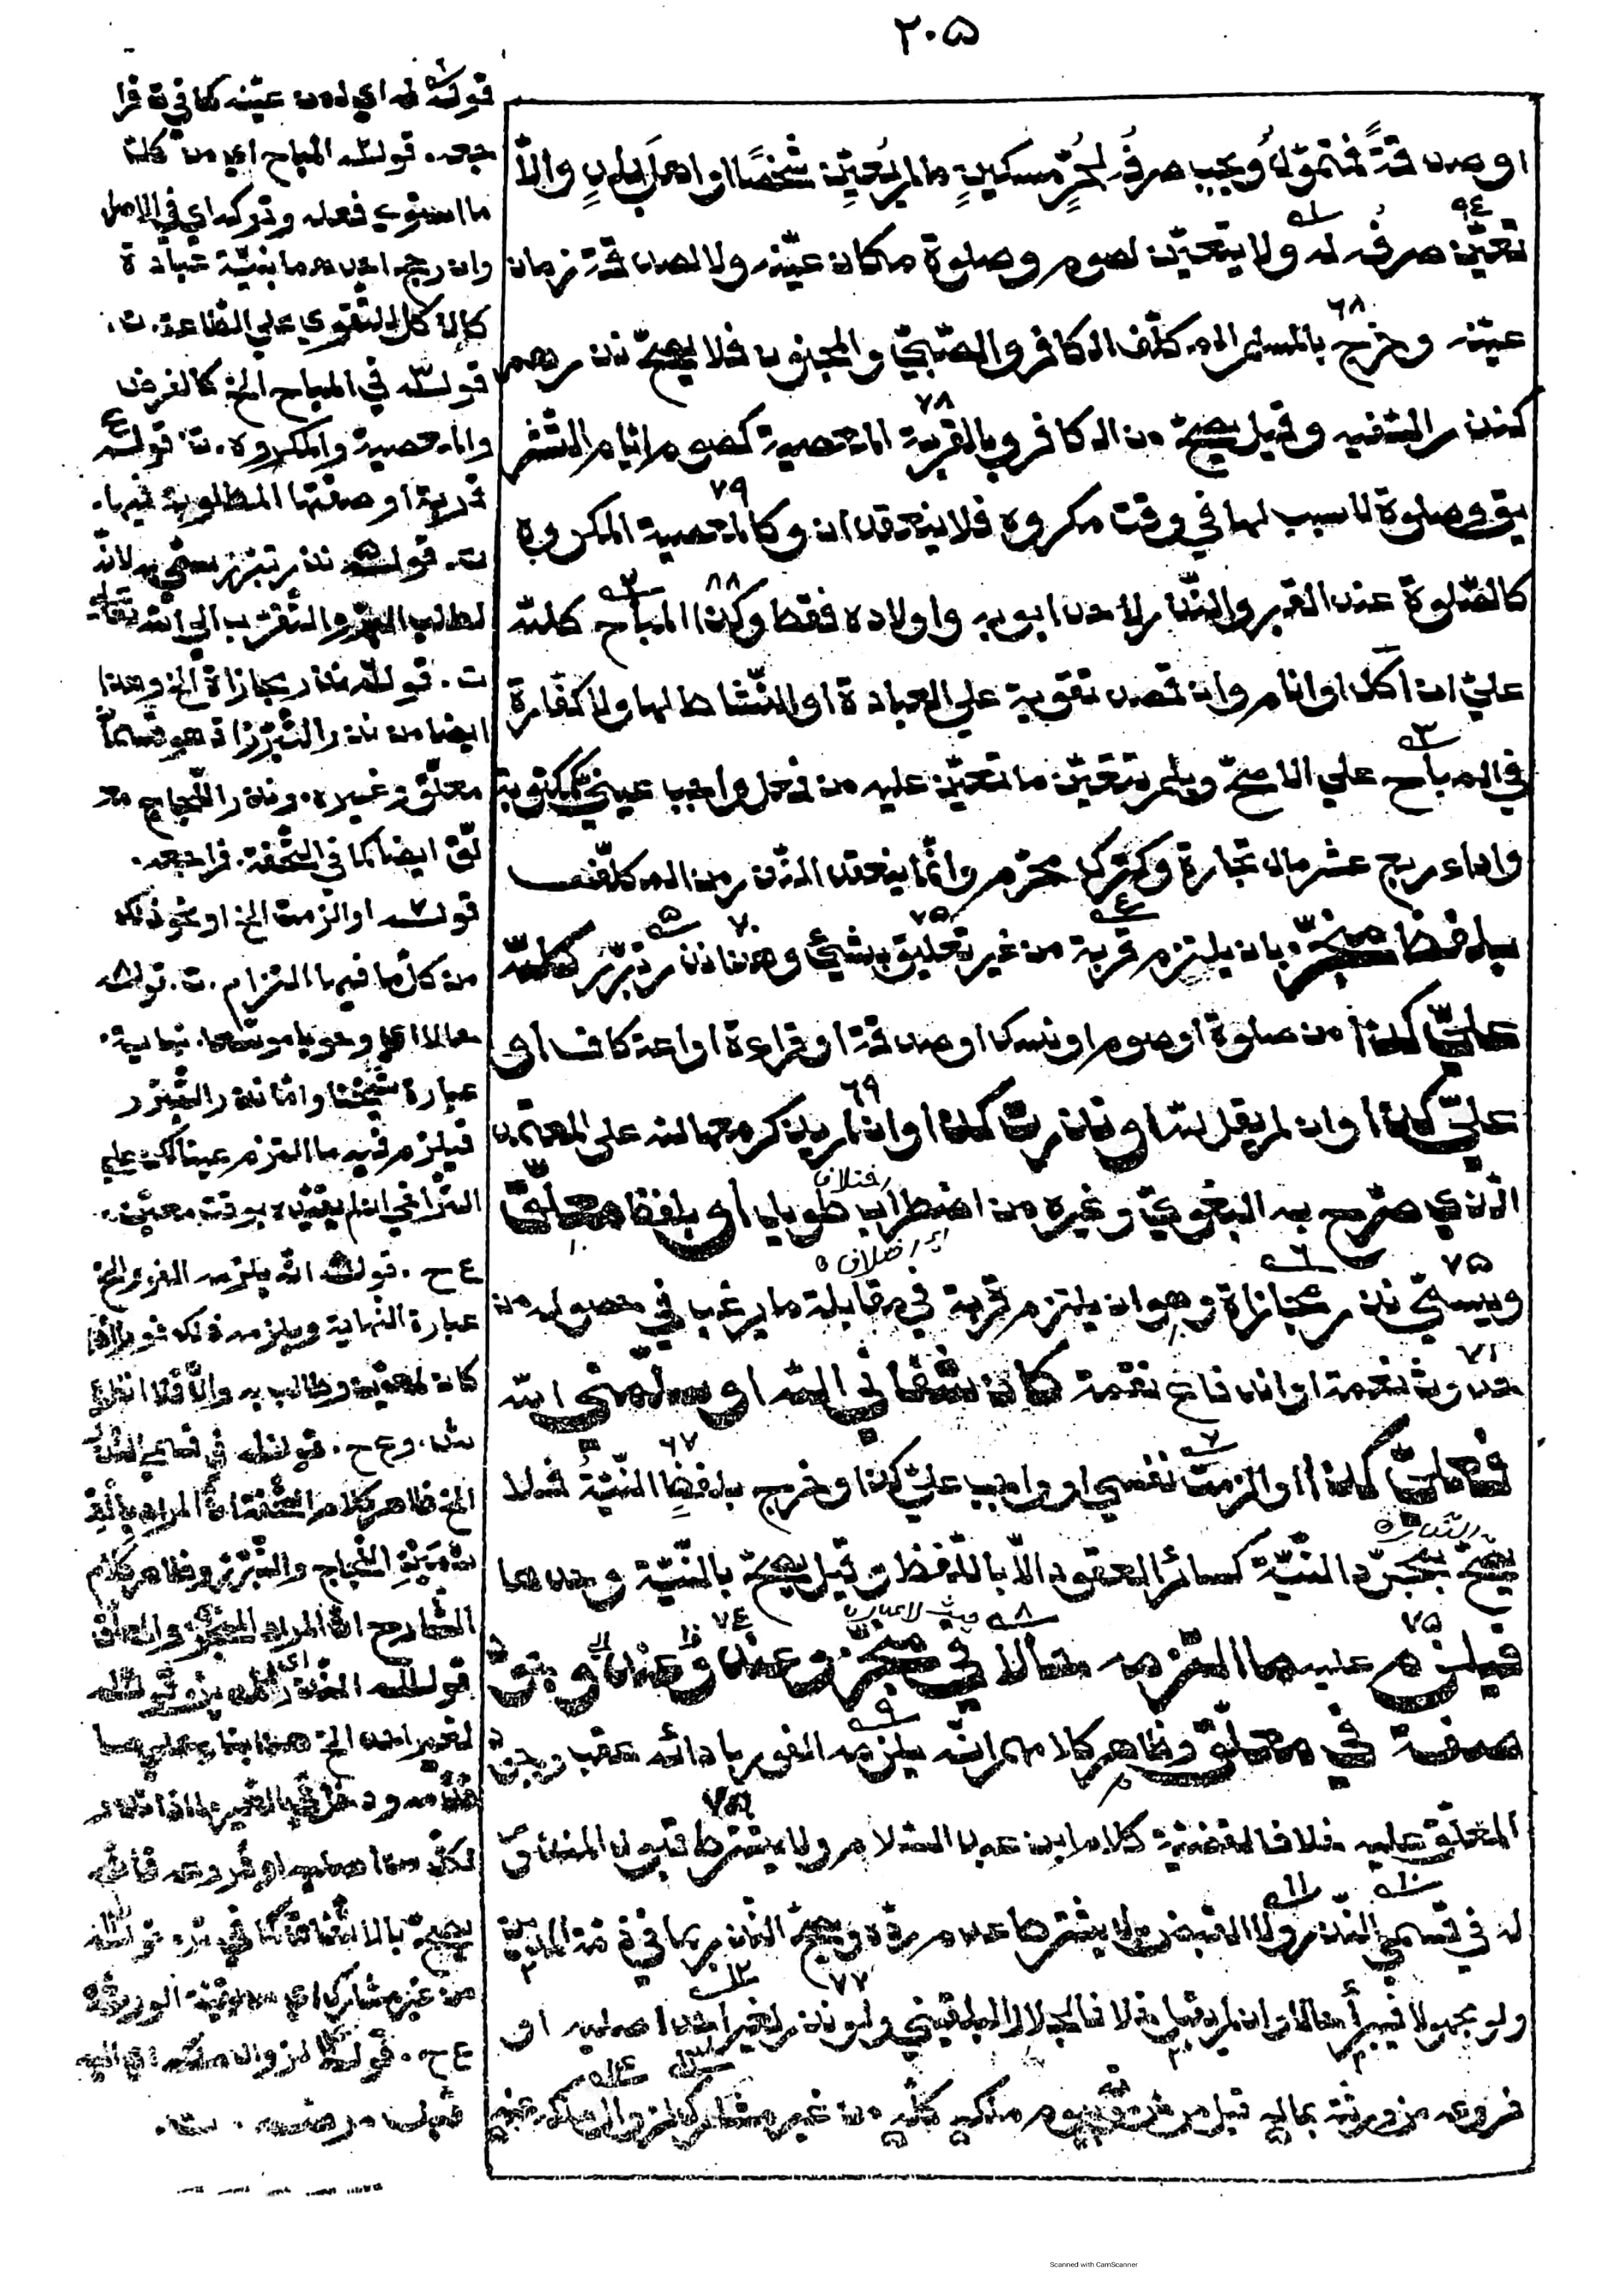 ٢٠٥
او صدقةً فمتموّلٌ ويجب صرفُه لحُرٍّ مسكينٍ ما لم يُعيِّن شخصًا او اهلَ بلدٍ والّا
تعيّن صرفُه له ولا يتعيّن لصوم وصلوة مكان عيّنه ولا لصدقة زمان
عيّنه وخرج بالمسلم المكلّف الكافر والصّبيّ والمجنون فلا يصحّ نذرهم
كنذر السّفيه وقيل يصحّ من الكافر وبالقربة المعصية كصوم ايّام التّشر
يق وصلوة لا سبب لها في وقت مكروه فلا ينعقدان وكالمعصية المكروه
كالصّلوة عند القبر والنّذر لاحد ابويه واولاده فقط وكذا المباح كلله
عليّ ان اكل او انام وان قصد تقوية على العبادة او النّشاط لها ولا كفّارة
في المباح علي الاصحّ وبلم يتعيّن ما تعيّن عليه من فعل واجب عينيّ كمكتوبة
واداء ربع عشر مال تجارة وكترك محرّم وانّما ينعقد النّذر من المكلّف
بلفظ منجّز بان يلتزم قربة من غير تعليق بشيئ وهذا نذر تبرّر كلله
عليّ كذا من صلوة او صوم او نسك او صدقة او قراءة او اعتكاف او
عليّ كذا وان لم يقل لله او نذرت كذا وان لم يذكر معها لله على المعتمد
الّذي صرّح به البغويّ وغيره من اضطراب طويل او بلفظ معلّق
اختلاف
اي اختلاف
ويسمّي نذر مجازاة وهو ان يلتزم قربة في مقابلة ما يرغب في حصوله من
حدوث نعمة او اندفاع نقمة كان شفاني الله او سلّمني الله
فعليّ كذا او الزمت نفسي او واجب عليّ كذا وخرج بلفظٍ النّيّةُ فلا
يصحّ بمجرّد النّيّة كسائر العقود الّا باللّفظ وقيل يصحّ بالنّيّة وحدها
فيلزم عليه ما التزمه حالا في منجّز وعند وجود
صفة في معلّق وظاهر كلامهم انّه يلزمه الفور بادائه عقب وجود
المعلّق عليه خلافا لقضيّة كلام ابن عبد السّلام ولا يشترط قبول المنذور
له في قسمي النّذر ولا القبض بل يشترط عدم ردّه ويصحّ النّذر بما في ذمّة المدين
ولو مجهولا فيبرأ حالا وان لم يقبل خلافا للجلال البلقيني ولو نذر لغير احد اصليه او
فروعه من ورثته بماله قبل مرض موته بيوم ملكه كلّه من غير مشارك لزوال ملكه عنه
قوله له اي لمن عيّنه كما في ق فرا
جعه. قوله المباح اي من كلّ
ما استوي فعله وتركه اي في الاصل
وان رجح احدهما بنيّة عبادة
كالاكل للتّقوي علي الطّاعة. ت.
قوله في المباح الخ كالفرض
والمعصية والمكروه. ت. قوله
قربة او صفتها المطلوبة فيها.
ت. قوله نذر تبرّر سمّي به لانّه
لطلب البرّ والتّقرّب الي الله تعا
ت. قوله نذر مجازاة الخ وهذا
ايضا من نذر التّبرّر اذ هو قسمان
معلّق وغيره. ونذر اللّجاج مع
لّق ايضا كما في التّحفة. فراجعه.
قوله او الزمت الخ او نحو ذلك
من كلّ ما فيها التزام. ت. قوله
حالا اي وجوبا موسّعا. نهاية.
عبارة شيخنا وامّا نذر التّبرّر
فيلزم فيه ما التزم عينا لكن علي
التّراخي ان لم يقيّده بوقت معيّن.
ع ح. قوله انّه يلزمه الفور الخ
عبارة النّهاية ويلزمه ذلك فورا اذا
كان لمعيّن وطالب به والّا فلا انتهى
ش. وع ح. قوله في قسمي النّذر
الخ ظاهر كلام التّحفة انّ المراد بالقـ
ـسمين اللّجاج والتّبرّر وظاهر كلام
الشّارح انّ المراد المنجّز والمعلّق
قوله
لغير احد الخ هذا بناء علي ما
لكلّ من اصليه او فروعه فانّه
يصحّ بالاتّفاق كما في ت. قوله
من غير مشارك اي من بقيّة الورثة
ع ح. قوله لزوال ملكه اي اليه
قبل مرضه. ت.
Scanned with CamScanner